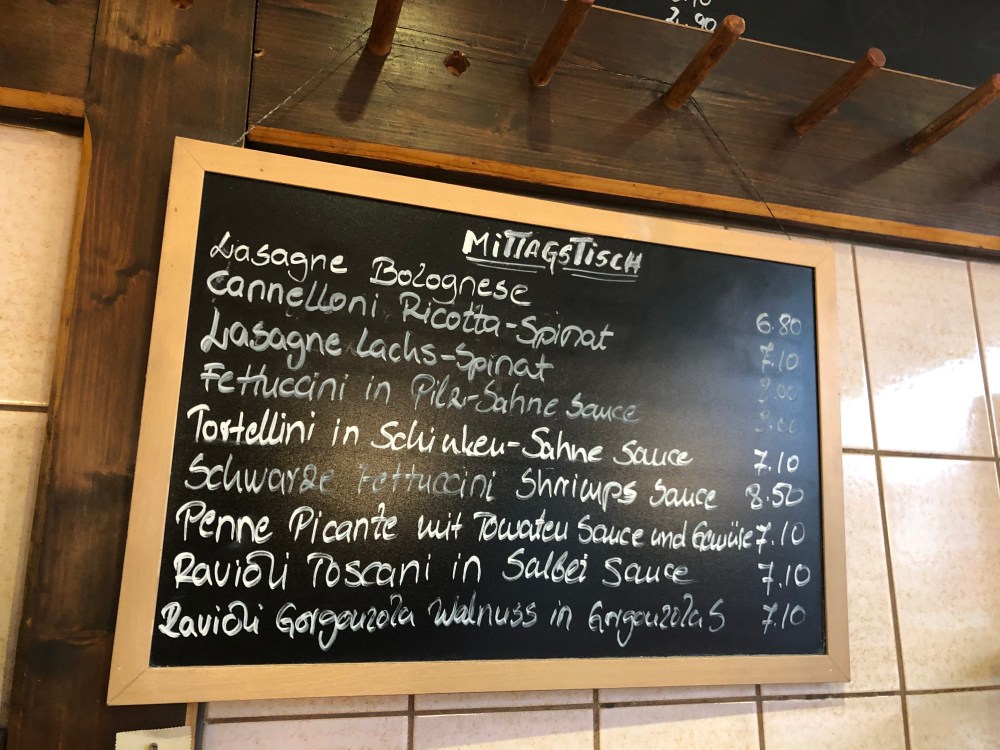 2.90
MITTAGSTISCH
Lasagne Bolognese 6.80
Cannelloni Ricotta-Spinat 7.10
Lasagne Lachs-Spinat 8.00
Fettuccini in Pilz-Sahne Sauce 8.00
Tortellini in Schinken-Sahne Sauce 7.10
Schwarze Fettuccini Shrimps Sauce 8.50
Penne Picante mit Tomaten Sauce und Gemüse 7.10
Ravioli Toscani in Salbei Sauce 7.10
Ravioli Gorgonzola Walnuss in Gorgonzola S 7.10